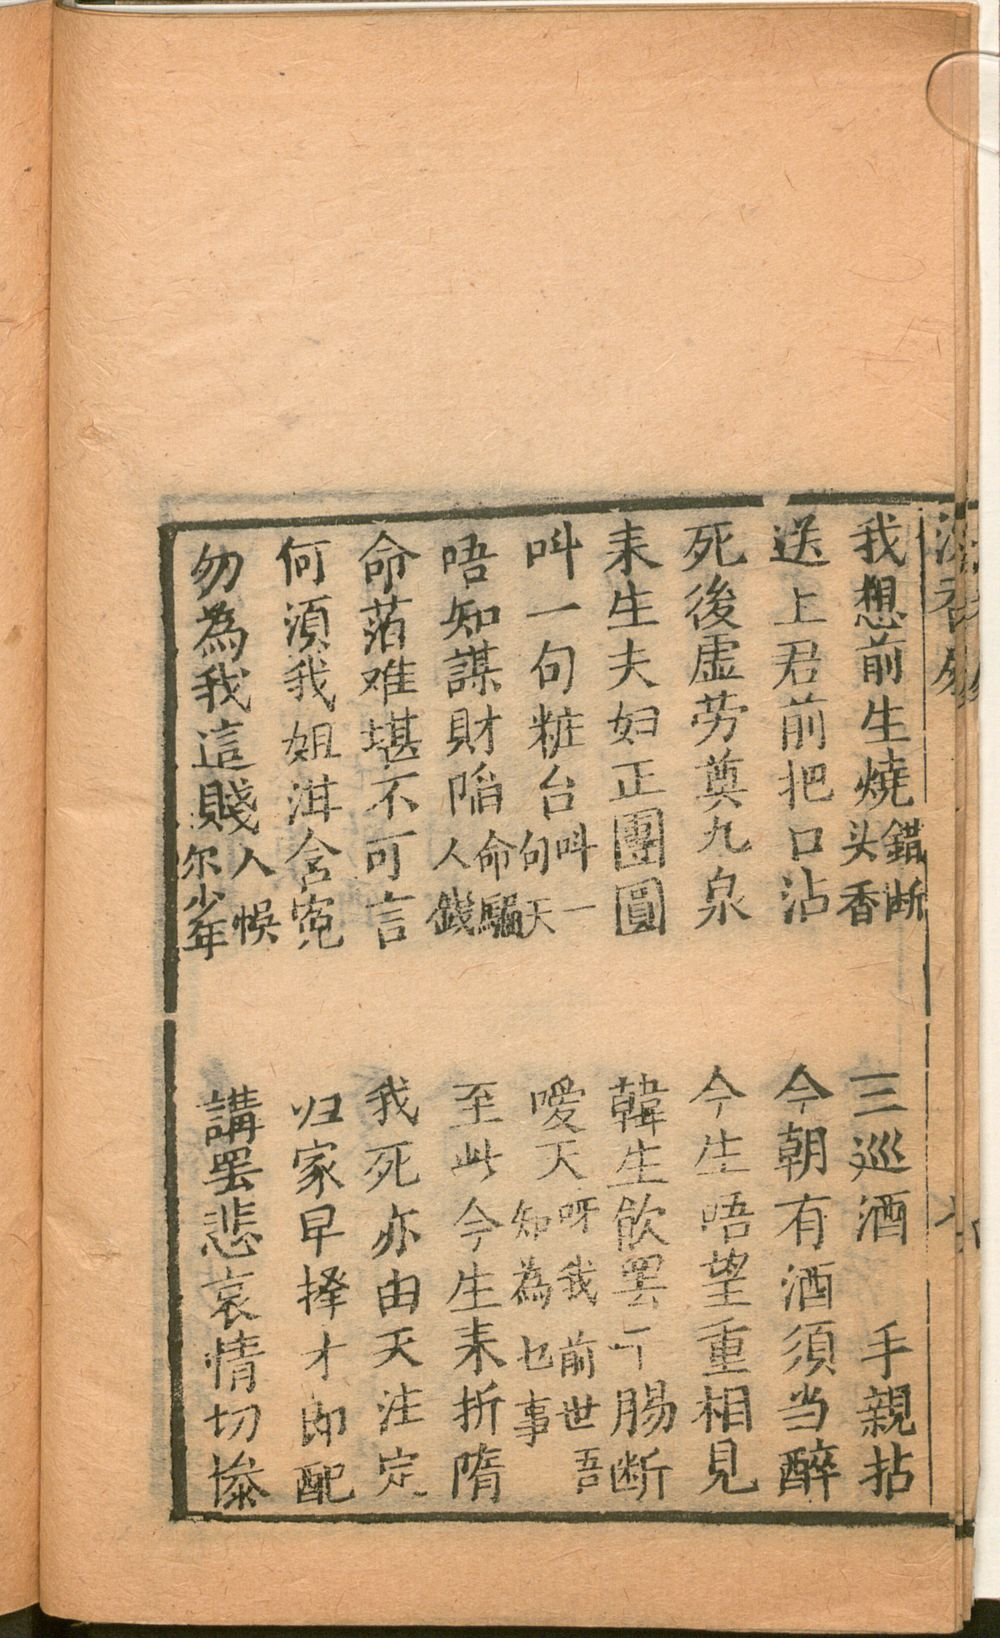 我想前生燒錯断头香　三巡酒　手親拈
送上君前把口沾　今朝有酒須当醉
死後虛劳奠九泉　今生唔望重相見
耒生夫妇正團圓　韓生飲罢丁腸断
叫一句粧台叫一句天　噯天呀我前世吾知為乜事
唔知謀財陥命騙人錢　至此今生耒折隋
命萡难堪不可言　我死亦由天注定
何須我姐洱含寃　归家早择才郎配
勿為我這賤人悞尔少年　講罢悲哀情切惨